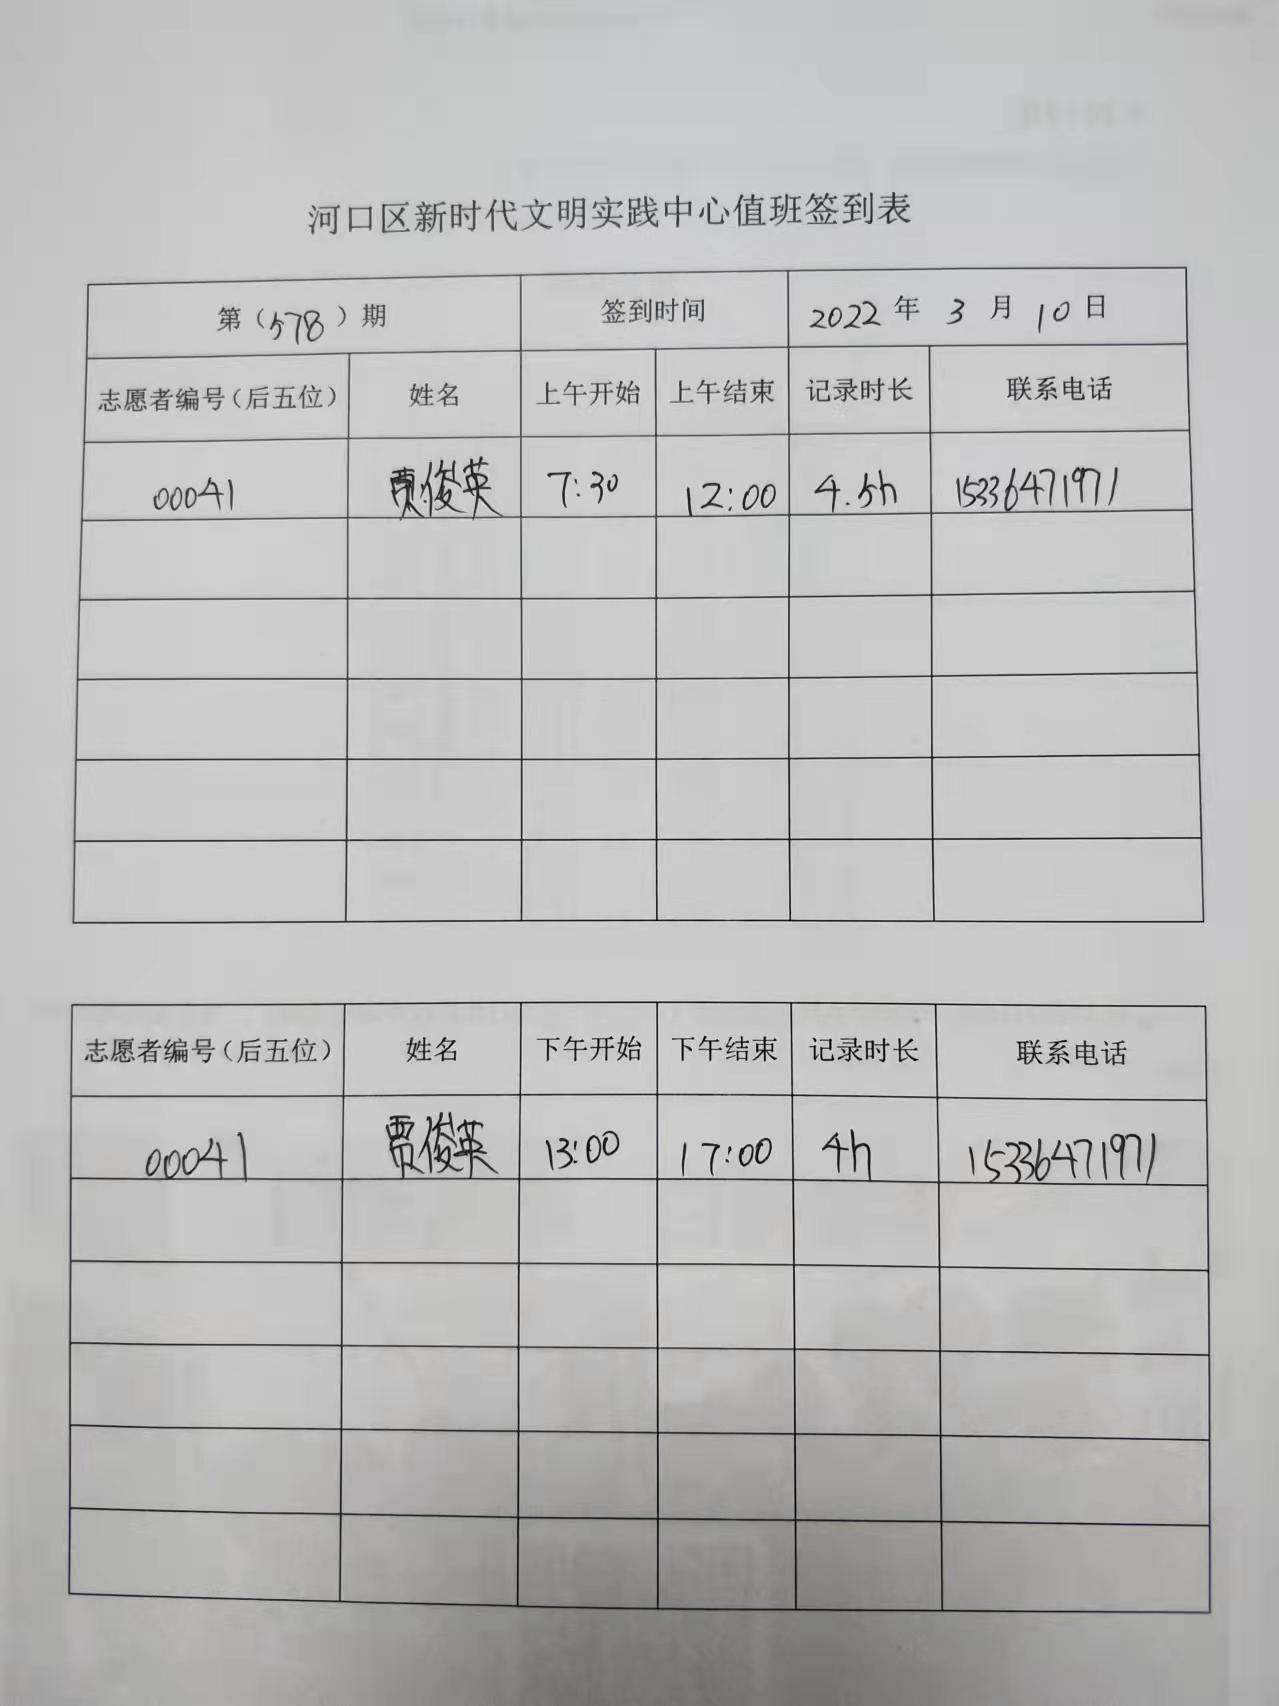 河口区新时代文明实践中心值班签到表
第（578）期 签到时间 2022年 3月 10日
志愿者编号（后五位） 姓名 上午开始 上午结束 记录时长 联系电话
00041 贾俊英 7:30 12:00 4.5h 15336471971
志愿者编号（后五位） 姓名 下午开始 下午结束 记录时长 联系电话
00041 贾俊英 13:00 17:00 4h 15336471971